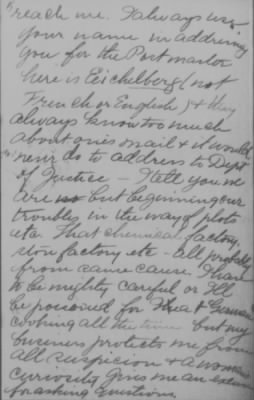 reach me. I always use
your name in addressing
you for the Postmaster
here is Eichelberg (not
French or English) & they
always know too much
about ones mail & it would
never do to address to Dept
of Justice — I tell you we
are but beginning our
troubles in the way of plots
etc. That chemical factory,
iron factory etc — all probably
from same cause. I have
to be mighty careful or I'll
be poisoned for & German
cooking all the time but my
business protects me from
all suspicion & a woman's
curiosity gives me an excuse
for asking questions.